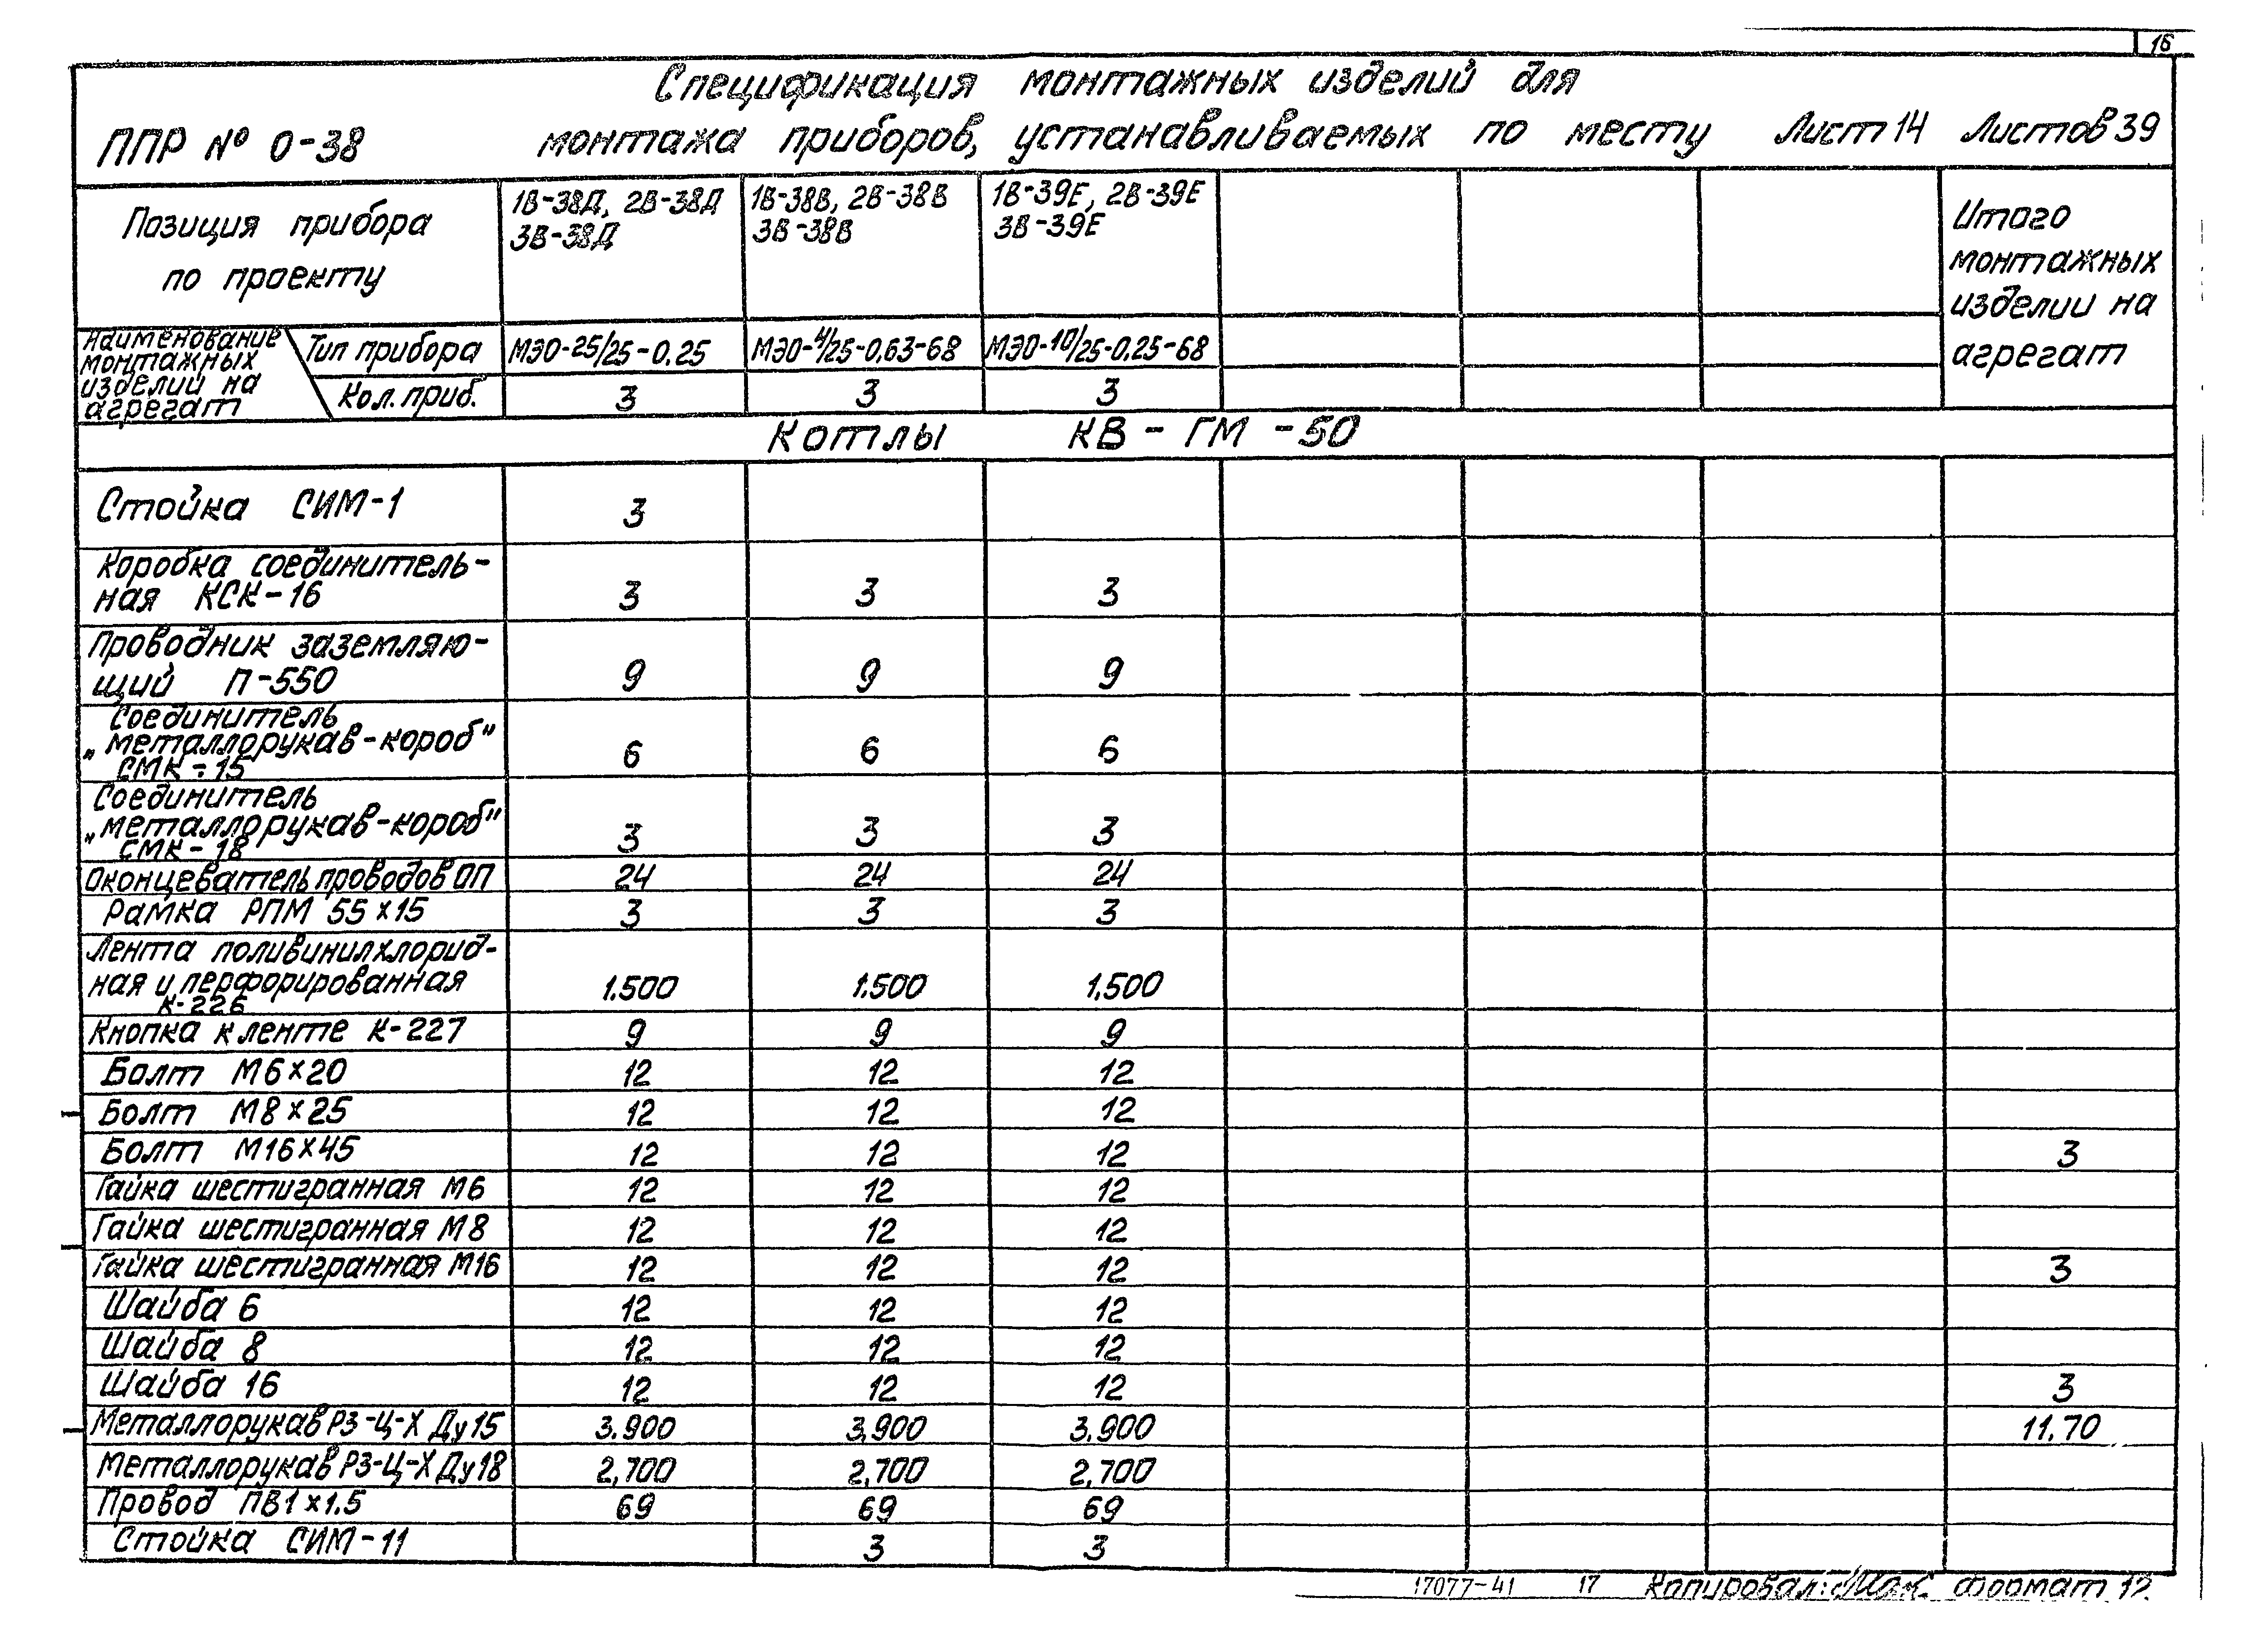 16
Спецификация монтажных изделий для
ППР № 0-38 монтажа приборов, устанавливаемых по месту Лист 14 Листов 39
Позиция прибора
по проекту
1В-38Д, 2В-38Д
3В-38Д
1В-38В, 2В-38В
3В-38В
1В-39Е, 2В-39Е
3В-39Е
Итого
монтажных
изделии на
агрегат
Наименование
монтажных
изделий на
агрегат
Тип прибора МЭО-25/25-0.25 МЭО-4/25-0,63-68 МЭО-10/25-0.25-68
Кол. приб. 3 3 3
Котлы КВ-ГМ-50
Стойка СИМ-1 3
Коробка соединитель-
ная КСК-16 3 3 3
Проводник заземляю-
щий П-550 9 9 9
Соединитель
„металлорукав-короб"
СМК-15 6 6 6
Соединитель
„металлорукав-короб"
СМК-18 3 3 3
Оконцеватель проводов ОП 24 24 24
Рамка РПМ 55х15 3 3 3
Лента поливинилхлорид-
ная и перфорированная
К-226 1.500 1.500 1.500
Кнопка к ленте К-227 9 9 9
Болт М6х20 12 12 12
Болт М8х25 12 12 12
Болт М16х45 12 12 12 3
Гайка шестигранная М6 12 12 12
Гайка шестигранная М8 12 12 12
Гайка шестигранная М16 12 12 12 3
Шайба 6 12 12 12
Шайба 8 12 12 12
Шайба 16 12 12 12 3
Металлорукав РЗ-Ц-Х Ду15 3.900 3,900 3.900 11.70
Металлорукав РЗ-Ц-Х Ду18 2,700 2,700 2,700
Провод ПВ1х1.5 69 69 69
Стойка СИМ-11 3 3
17077-41 17 Копировал: Формат 12